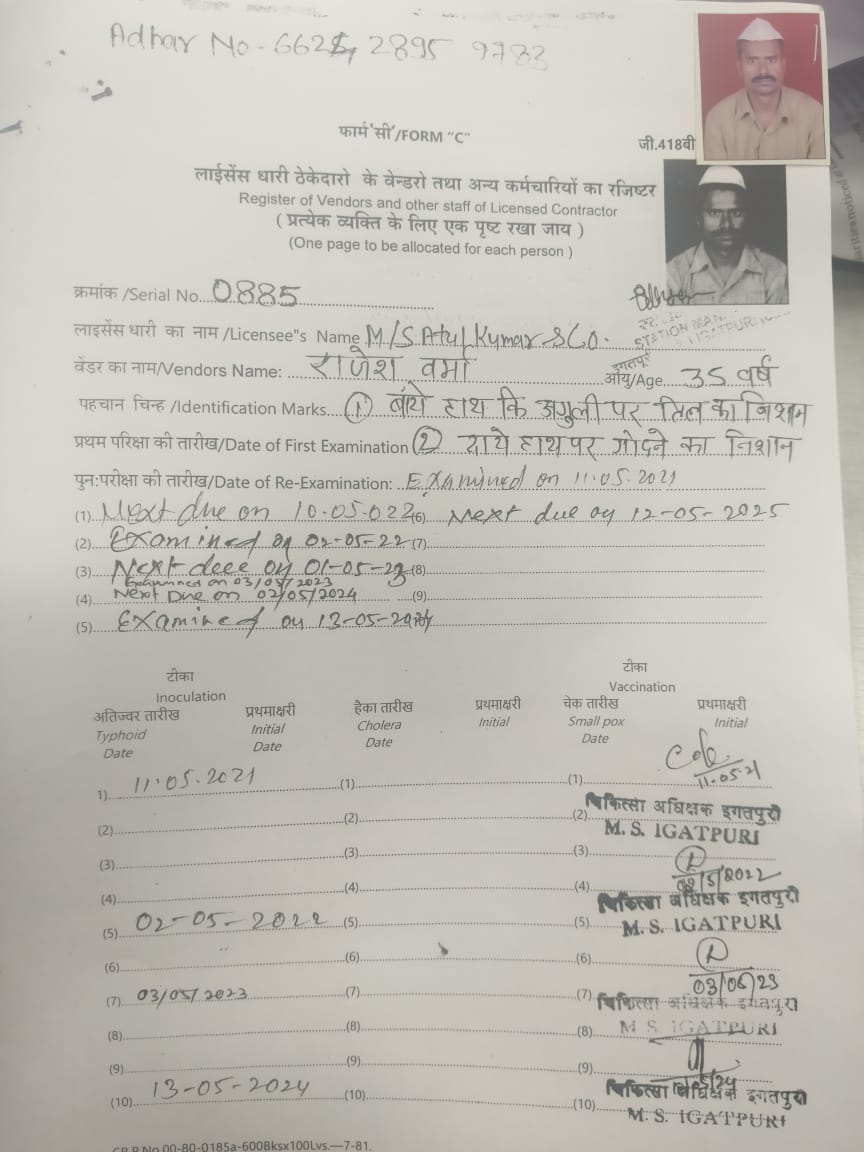 Adhar No - 662 2895 9783
फार्म 'सी'/FORM "C"
जी.418बी
लाईसेंस धारी ठेकेदारो के वेन्डरो तथा अन्य कर्मचारियों का रजिष्टर
Register of Vendors and other staff of Licensed Contractor
( प्रत्येक व्यक्ति के लिए एक पृष्ट रखा जाय )
(One page to be allocated for each person )
क्रमांक /Serial No. 0885
STATION MAN
इगतपुरी
लाइसेंस धारी का नाम /Licensee"s Name M/S Atul Kumar & CO.
वेंडर का नाम/Vendors Name: राजेश वर्मा आयु/Age 35 वर्ष
पहचान चिन्ह /Identification Marks (1) बाँये हाथ कि अगुली पर तिल का निशाम
प्रथम परिक्षा की तारीख/Date of First Examination (2) दाये हाथ पर गोदने का निशान
पुन:परीक्षा की तारीख/Date of Re-Examination: Examined on 11.05.2021
(1) Next due on 10.05.022 (6) Next due on 12-05-2025
(2) Examined on 02-05-22 (7)
(3) Next deee on 01-05-23 (8)
Examinned on 03/05/2023
(4) Next Due on 02/05/2024 (9)
(5) Examined on 13-05-2024
टीका टीका
Inoculation Vaccination
अतिज्वर तारीख प्रथमाक्षरी हैका तारीख प्रथमाक्षरी चेक तारीख प्रथमाक्षरी
Typhoid Initial Cholera Initial Small pox Initial
Date Date Date Date
1) 11.05.2021 (1) (1) 11.05.21
(2) (2) (2) चिकित्सा अधिक्षक इगतपुरी
M. S. IGATPURI
(3) (3) (3)
02/5/2022
(4) (4) (4) चिकित्सा अधिक्षक इगतपुरी
(5) 02-05-2022 (5) (5) M. S. IGATPURI
(6) (6) (6)
03/05/23
(7) 03/05/2023 (7) (7) चिकित्सा अधिक्षक इगतपुरी
(8) (8) (8) M S IGATPURI
(9) (9) (9)
चिकित्सा अधिक्षक इगतपुरी
(10) 13-05-2024 (10) (10) M. S. IGATPURI
CR.P.No.00-80-0185a-600Bksx100Lvs.—7-81.